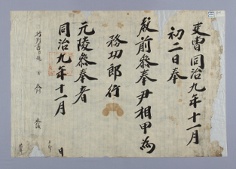 吏曹同治九年十一月
初二日奉
教前參奉尹相甲爲
務功郎行
元陵參奉者
同治九年十一月